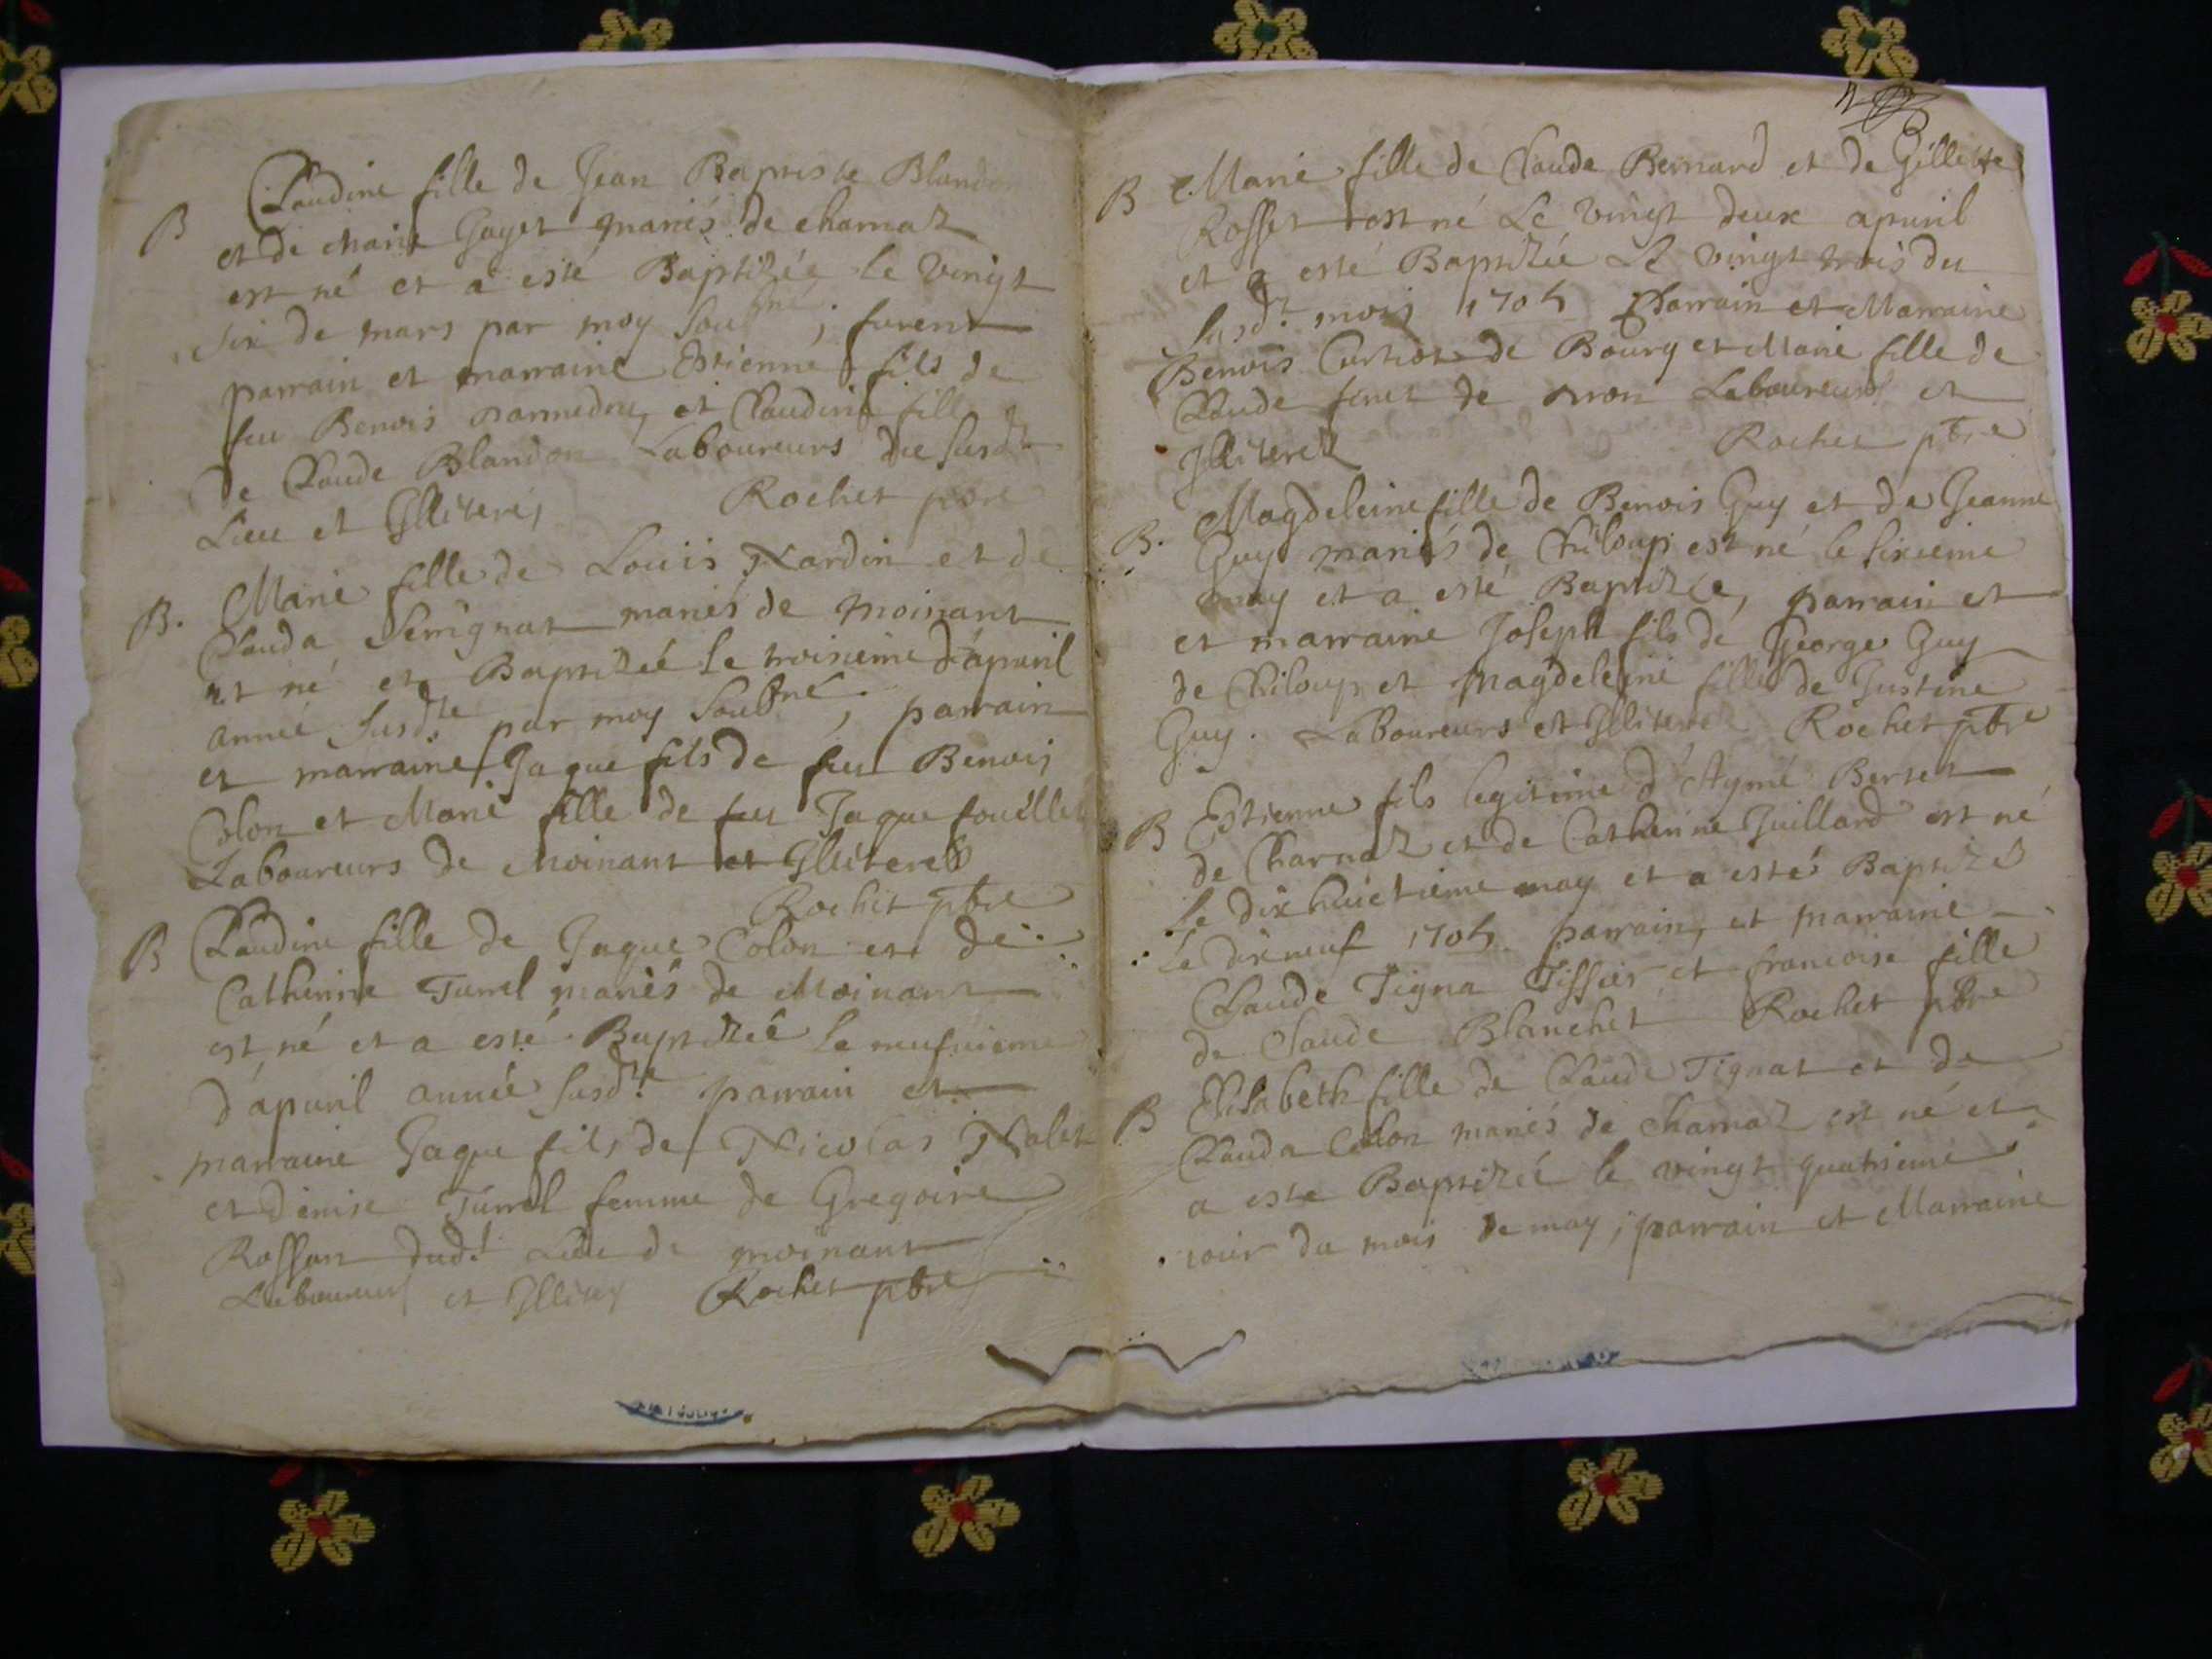 B Claudine fille de Jean Baptiste Blandon
et de Marie Guyet mariés de charnaz
est né et a esté Baptizée le vingt
six de mars par moy soubné ; furent
parrain et marraine Estienne fils de
feu Benois et Claudine fille
de Claude Blandon Laboureurs du susdt
Lieu et Illiterés
Rochet pbre
B. Marie fille de Louis Nardin et de
Clauda Serignat mariés de moinant
est né et Baptizée le troisieme d'apuril
année susdte par moy soubné ; parrain
et marraine Jaque fils de feu Benois
Colon et Marie fille de feu Jaque fouillet
Laboureurs de Moinant et Illiterés
Rochet pbre
B Claudine fille de Jaque Colon et de
Catherine Turrel mariés de Moinant
est né et a esté Baptizée le neufuieme
d'apuril année susdte parrain et
marraine Jaque fils de Nicolas Nalet
et denise Turrel femme de Gregoire
Rossan dudt Lieu de moinant
Laboureurs et
Rochet pbre
B Marie fille de Claude Bernard et de Gillette
Rosset est né Le vingt deux apuril
et a esté Baptizée Le vingt trois du
susdt mois 1704 Parrain et Marraine
Benois de Bourg et Marie fille de
Claude de Laboureurs et
Illiterez
Rochet pbre
B. Magdeleine fille de Benois Guy et de Jeanne
Guy mariés de Chiloup est né le sixieme
may et a esté Baptizée, parrain et
et marraine Joseph fils de George Guy
de Chiloup et Magdeleine fille de Justine
Guy. Laboureurs et Illiterez Rochet pbre
B Estienne fils legitime d'Aymé Bertet
de Charnaz et de Catherine Juillard est né
le dix huictieme may et a esté Baptizé
le dixneuf 1704 parrain, et marraine
Claude Tigna Tissier et francoise fille
de Claude Blanchet Rochet pbre
B Elisabeth fille de Claude Tignat et de
Clauda Colon mariés de charnaz est né et
a esté Baptizée le vingt quatrieme
iour du mois de may ; parrain et Marraine